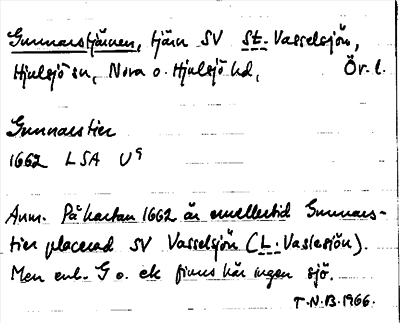 Gunnarstjärnen, tjärn SV St. Vasselsjön,
Hjulsjö sn, Nora o. Hjulsjö hd, Ör. l.
Gunnarstier
1662 LSA U⁹
Anm. På kartan 1662 är emellertid Gunnars-
tier placerad SV Vasselsjön (L. Vaslesjön).
Men enl. G o. ek finns här ingen sjö.
T.N.B. 1966.